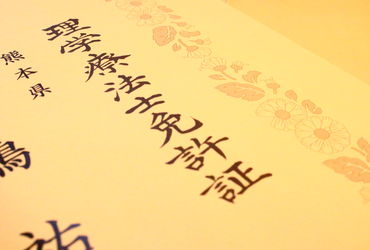 理学療法士免許証
熊本県
鳥
祐